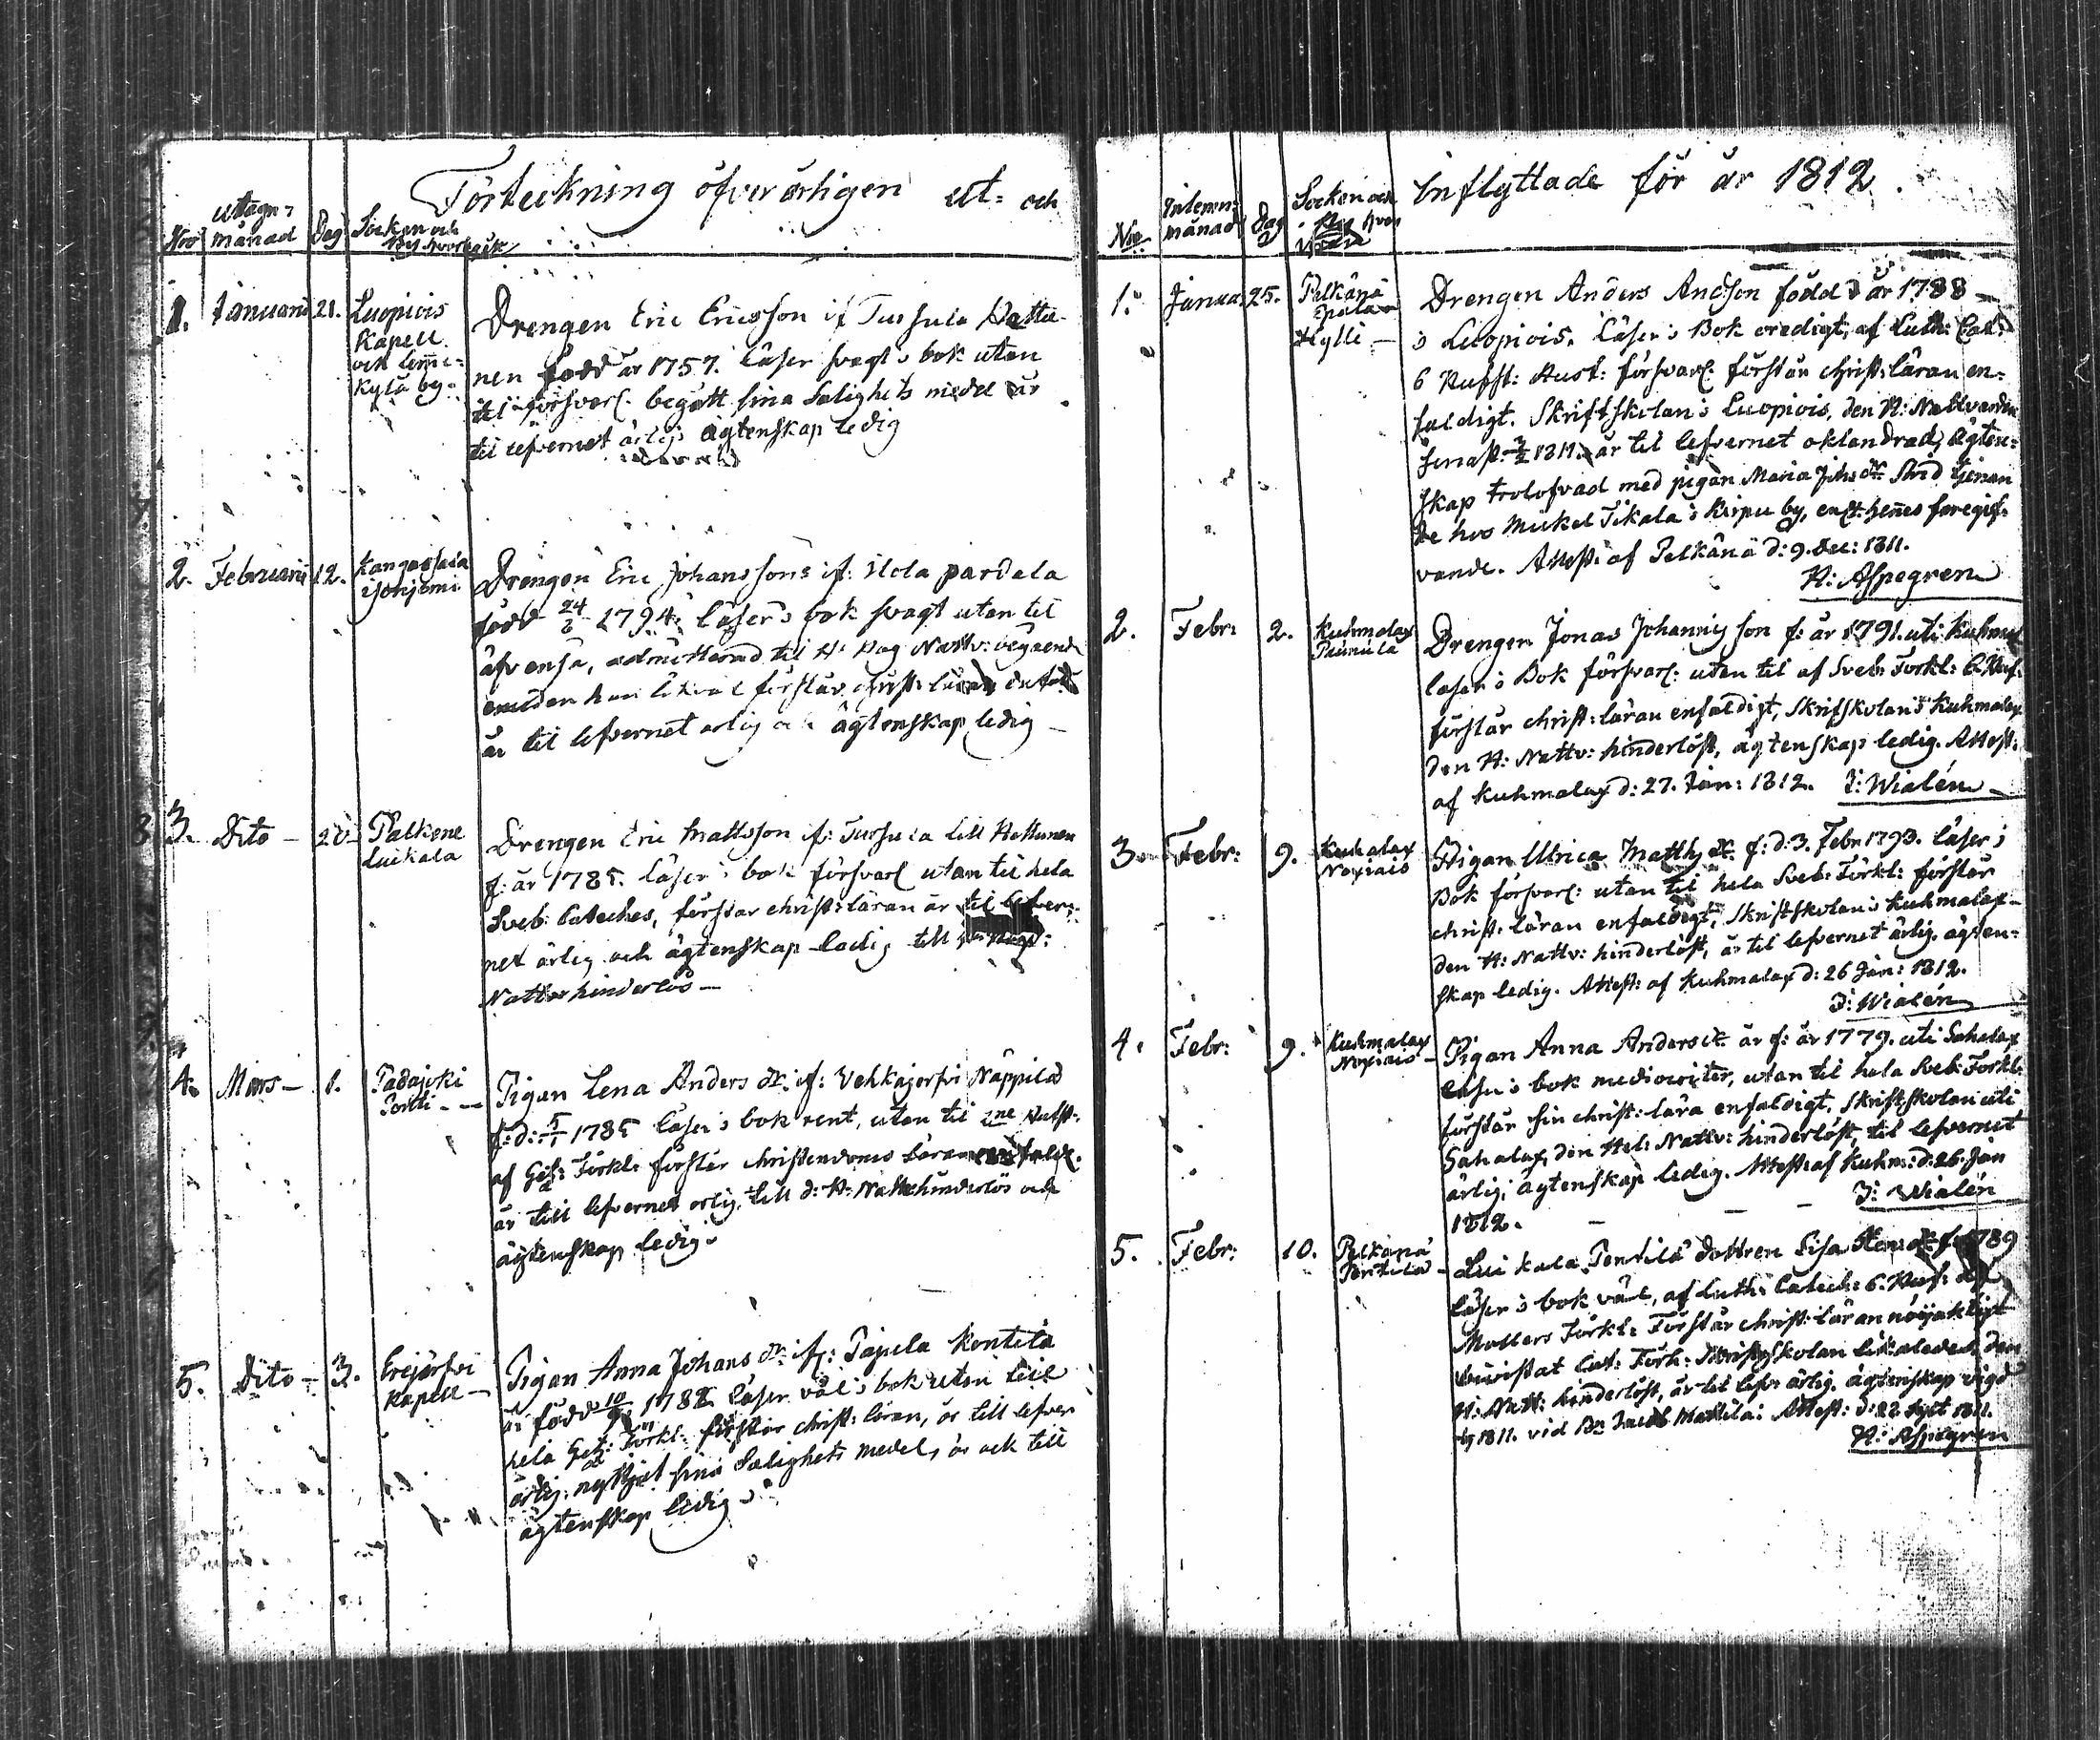 Förteckning öfver årligen ut- och
Nro
uttagn:
månad
Dag
Socken och
By
1.
Januarii
21.
Luopiois
Kapell
och
kylä by
Drengen Eric Ericsson if Tursula Hattu-
nen född år 1757. läser svagt i bok utan
til försvarl. begått sina Salighets medel är
til lefvernet ärlig ägtenskap ledig
2.
Februarii
12.
Kangasala
Drengen Eric Johansson if:
född 24 1794. läser i bok svagt utan til
äfvensa, admitterad til H:
förstår christ: läran
är til lefvernet ärlig och ägtenskap ledig
3.
Dito
20
Palkene
Luikala
Drengen Eric Mattsson if: Tursula Hattunen
f: år 1785. läser i bok försvarl utan til hela
Sveb: Cateches, förstår christ: läran är til lefver-
net ärlig och ägtenskap ledig till
Nattv hinderlös
4.
Mars
1.
Padajoki
Pigan Lena Anders dr: if: Vehkajerfvi Näppilä
f: d: 5/1 1785 läser i bok rent, utan til
af Get: Förkl: förstår christendoms läran
är till lefvernet ärlig, till d: H: Nattv hinderlös och
ägtenskap ledig
5.
Dito
3.
Erejärfvi
Kapell
Pigan Anna Johans dr: if: Pajula Kontila
är född läser väl i bok utan till
hela Get: Förkl: förstår christ: läran, är till lefver
ärlig, sina Salighets medel, är och till
ägtenskap ledig
inflyttade för år 1812.
Nro
månad
Dag
Socken och
1.
Janua.
25.
Pelkänä
Hylli
Drengen Anders Andson född år 1788
i Luopiois. Läser i Bok oredigt, af Luth: Cat:
6 Hufst: Hust: försvarl: förstår christ: läran en-
faldigt. Skriftskolan i Luopiois, den H: Nattvarden
senast 1811. är til lefvernet oklandrad, ägten-
skap trolofvad med pigan Maria Johs dr: tjenan
de hos Mickel Tikala i by, enl: hennes föregif-
vande. Attest: af Pelkänä d: 9. Dec: 1811.
H: Aspegren
2.
Febr:
2.
Kuhmalax
Drengen Jonas Johannisson f: år 1791. uti Kuhmal
läser i Bok försvarl: utan til af Sveb: Förkl: 6 Huf:
förstår christ: läran enfaldigt, Skriftskolan i Kuhmalax
den H: Nattv: hinderlöst, ägtenskap ledig. Attest:
af Kuhmalax d: 27. Jan: 1812. J: Wialén
3.
Febr:
9.
Kuhalax
Pigan Ulrica Matths dr. f: d: 3. Febr 1793. läser i
Bok försvarl: utan til hela Sveb: Förkl: förstår
christ: läran enfaldigt, Skriftskolan i Kuhmalax
den H: Nattv: hinderlöst, är til lefvernet ärlig, ägten-
skap ledig. Attest: af Kuhmalax d: 26 Jan: 1812.
J: Wialén
4.
Febr:
9.
Kuhmalax
Pigan Anna Anders dr. är f: år 1779. uti Sahalax
läser i bok mediocriter, utan til hela Sveb: Förkl:
förstår sin christ: lära enfaldigt, Skriftskolan uti
Sahalax, den Hel: Nattv: hinderlöst, til lefvernet
ärlig, ägtenskap ledig. Attest: af Kuhm: d: 26. Jan
1812.
J: Wialén
5.
Febr:
10.
Pelkänä
Pentilä
Luikala Pentilä dottren Lisa 1789
Läser i bok väl, af Luth: Catech: 6. Huf:
Möllers Förkl: Förstår christ: läran nöijaktigt
bevistat Förh: Skriftskolan den
H: Natt: hinderlöst, är til lefv: ärlig, ägtenskap
1811. vid Attest: d: 22 1811.
H: Aspegren